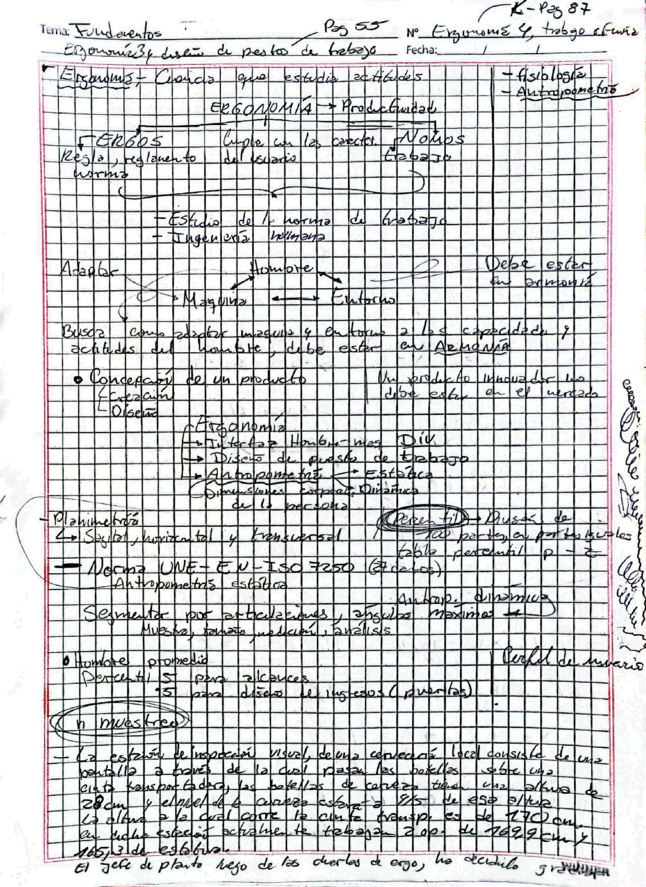 K- Pag 87
Tema: Fundamentos Pag 55 Nº Ergonomía 4, trabajo
Ergonomía 3 y diseño de pestos de trabajo Fecha: / /
Ergonomía - Ciencia que estudia actitudes
- fisiología
- Antropometría
ERGONOMÍA → Productividad
ERGOS Cumple con las caract. NOMOS
Regla, reglamento del usuario trabajo
norma
- Estudio de la norma de trabajo
- Ingeniería humana
Adaptar Hombre Debe estar
en armonía
Maquina Entorno
Busca como adaptar maquina y entorno a las capacidades y
actitudes del hombre, debe estar en ARMONÍA
• Concepción de un producto Un producto innovador no
Creación debe estar en el mercado
Diseño
Ergonomía
→ Interfaz Hombre-maq Div.
→ Diseño de puesto de trabajo
→ Antropometría → Estática
Dimensiones corporal Dinámica
de la persona
- Planimetría Percentil → Division de
↳ Sagital, horizontal y transversal 100 partes, en partes iguales
tabla percentil p - z
- Norma UNE-EN-ISO 7250 (datos)
Antropometría estática
Antrop. dinámica
Segmentar por articulaciones, ángulos máximos
Muestra, tamaño, medición, análisis
• Hombre promedio Perfil de usuario
Percentil 5 para alcances
95 para diseño de ingresos (puertas)
n muestreo
- La estación de inspección visual, de una cervecería local consiste de una
pantalla a través de la cual pasan las botellas sobre una
cinta transportadora, las botellas de cerveza tienen una altura de
28cm y el nivel de la cerveza esta a 4/5 de esa altura
La altura a la cual corre la cinta transp. es de 170 cm.
en dicha estación actualmente trabajan 2 op. de 169,9 cm y
165,3 de estatura.
El jefe de planta luego de las charlas de ergo, ha decidido